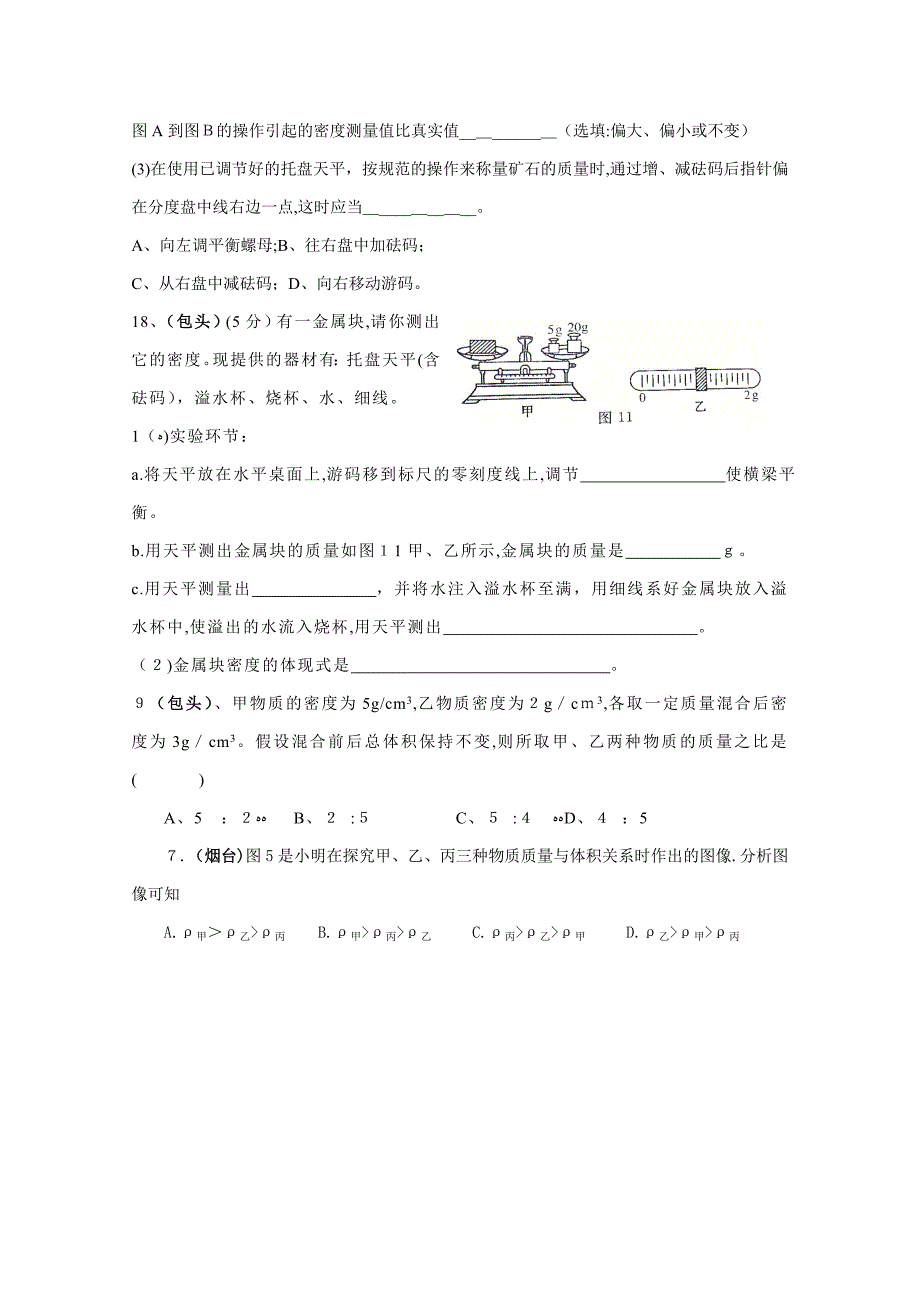 图 A 到图Ｂ的操作引起的密度测量值比真实值__ __ ______ __（选填:偏大、偏小或不变）
(3)在使用已调节好的托盘天平，按规范的操作来称量矿石的质量时,通过增、减砝码后指针偏
在分度盘中线右边一点,这时应当__ ____ __ __ __。
A、向左调平衡螺母;B、往右盘中加砝码；
C、从右盘中减砝码；D、向右移动游码。
18、（包头）(5 分）有一金属块,请你测出
它的密度。现提供的器材有：托盘天平(含
砝码），溢水杯、烧杯、水、细线。
5g 20g
甲
0
2g
乙
图 11
1（ﻩ)实验环节：
a.将天平放在水平桌面上,游码移到标尺的零刻度线上,调节                使横梁平
衡。
b.用天平测出金属块的质量如图１1 甲、乙所示,金属块的质量是          ｇ。
c.用天平测量出              ，并将水注入溢水杯至满，用细线系好金属块放入溢
水杯中,使溢出的水流入烧杯,用天平测出                            。
（２)金属块密度的体现式是                            。
９（包头）、甲物质的密度为 5g/cm³,乙物质密度为２g／cｍ³,各取一定质量混合后密
度为 3g／cm³。假设混合前后总体积保持不变,则所取甲、乙两种物质的质量之比是
(        )
A、5 ：２ﻩﻩ B、２ :５ C、５ :４ ﻩﻩD、４ ：5
７.（烟台)图５是小明在探究甲、乙、丙三种物质质量与体积关系时作出的图像.分析图
像可知
A.ρ甲＞ρ乙>ρ丙 B.ρ甲>ρ丙>ρ乙 C.ρ丙>ρ乙>ρ甲 D.ρ乙>ρ甲>ρ丙